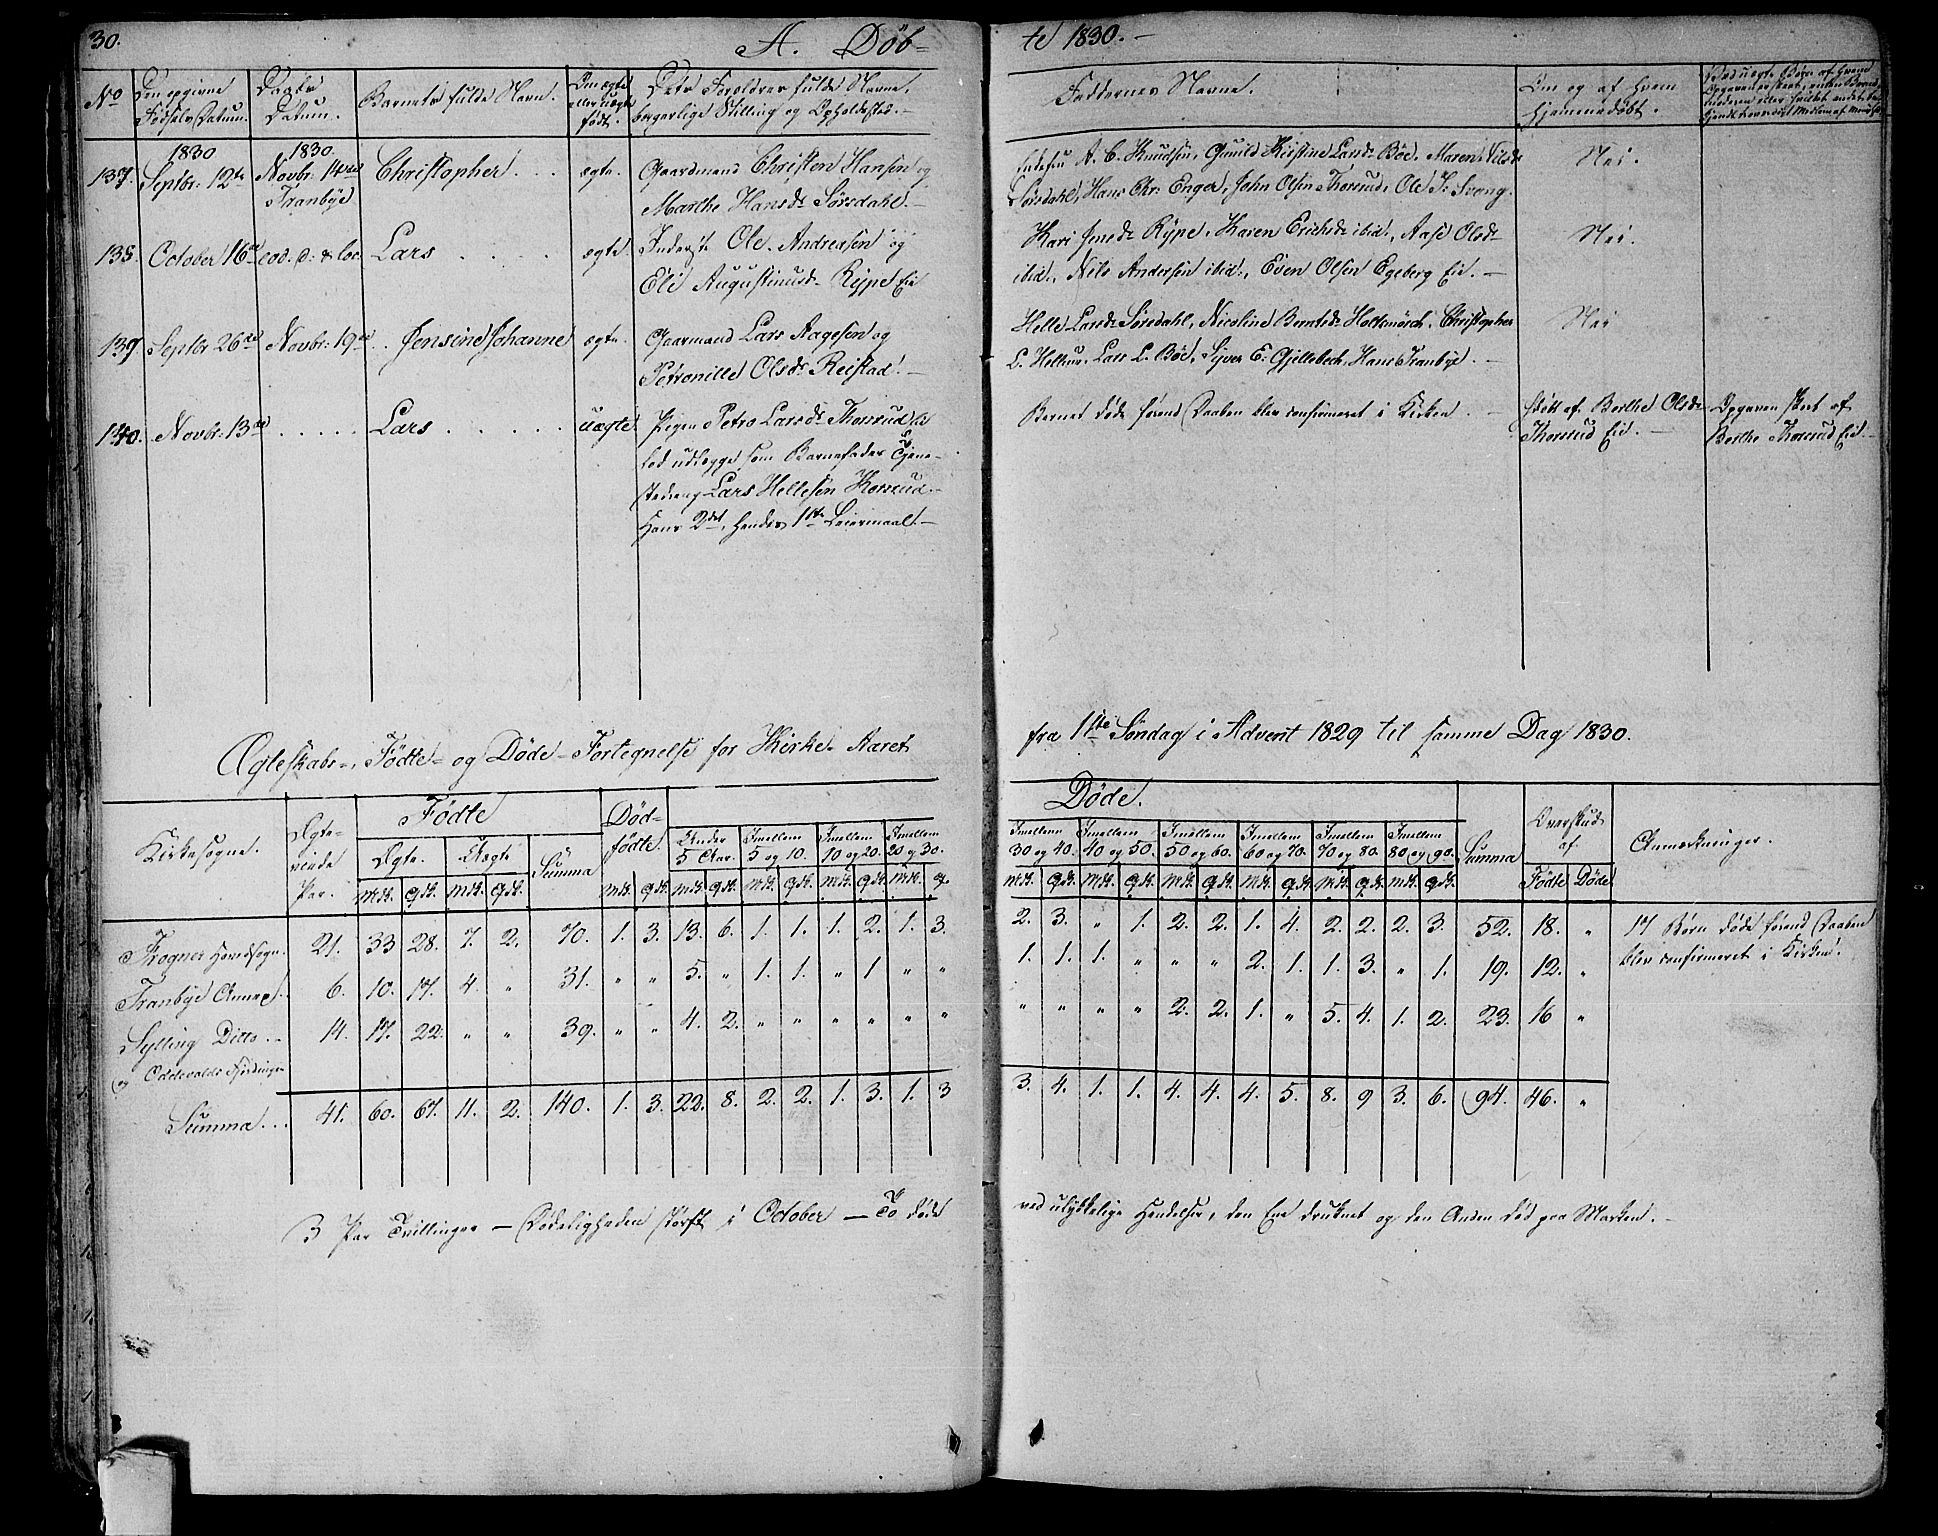 30.
A. Døb-
te 1830.-
No
Den opgivne
Fødsels Datum.
Daabs
Datum.
Barnets fulde Navn.
Om ægte
eller uægte
født.
Dets Forældres fulde Navne,
borgerlige Stilling og Opholdssted.
Faddernes Navne.
Om og af hvem
hjemmedøbt.
137.
1830
Septbr. 12te
1830.
Novbr. 14de
Tranbye
Christopher. . .
ægte.
Gaardmand Christen Hansen og
Marthe Hansdr Sørsdahl.-
A. C. Knudsen, Gunild Kirstine Larsdr Bøe, Maren Nilsdr
Sørsdahl, Hans Chr. Enger, John Olsen Thorsrud, Ole
Nei.
138.
October 16de
eod. d: & loc.
Lars . . . .
ægte.
Inderst Ole Andreasen og
Eli Augustinusdr Rype Eie
Kari Jensdr Rype, Karen Erichsdr ibid., Aase Olsdr
ibid., Nils Andersen ibid., Even Olsen Egeberg Eie.-
Nei.
139.
Septbr 26de
Novbr: 19de
. . Jensine Johanne
ægte.
Gaarmand Lars Aagesen og
Petronille Olsdr Reistad.-
Helle Larsdr Sørsdahl, Nicoline Berntsdr Holtsmörch, Christopher
L. Hellum, Lars L. Bøe, Syver E. Gjellebech, Hans Tranbye.-
Nei
140.
Novbr. 13de
. . . . .
Lars . . . . .
uægte.
Pigen Petro Larsdr Thorsrud
lod udlægge som Barnefader Tjene-
stedreng Lars Hellesen Korsrud.-
Hans 2det, hendes 1ste Leiermaal.-
Barnet døde førend Daaben blev confirmeret i Kirken.-
skett af Berthe Olsdr
Thorsrud Eie.-
Opgaven skeet af
Berthe Thorsrud Eie.-
Ægteskabs-, Fødte- og Døde-Fortegnelse for Kirke-Aaret
fra 1ste Søndag i Advent 1829 til samme Dag 1830.
Kirkesogne.
Ægte-
viede
Par.
Fødte
Ægte.
Uægte
Summa
Død-
fødte.
Døde.
Under
5 Aar.
Imellem
5 og 10.
Imellem
10 og 20.
Imellem
20 og 30.
Imellem
30 og 40.
Imellem
40 og 50.
Imellem
50 og 60.
Imellem
60 og 70.
Imellem
70 og 80.
Imellem
80 og 90.
Summa
Overskud
af
Fødte Døde
Anmærkninger.
Mdk. Qdk. Mdk. Qdk. Mdk. Qdk. Mdk. Qdk. Mdk. Qdk. Mdk. Qdk. Mdk. Q
Mdk. Qdk. Mdk. Qdk. Mdk. Qdk. Mdk. Qdk. Mdk. Qdk. Mdk. Qdk.
Frogner Hovedsogn. 21. 33 28. 7. 2. 70. 1. 3. 13. 6. 1. 1. 1. 2. 1. 3. 2. 3. " 1. 2. 2. 1. 4. 2. 2. 2. 3. 52. 18. "
17 Børn døde førend Daaben
blev confirmeret i Kirken.
Tranbye Annex. 6. 10. 17. 4. " 31. " " 5. " 1. 1. " 1 " " 1. 1. 1. " " " 2. 1. 1. 3. " 1. 19. 12. "
Sylling Ditto . . 14. 17. 22. " " 39. " " 4. 2. " " " " " " " " " " 2. 2. 1. " 5. 4. 1. 2. 23. 16 "
og Oddevalds Fjerdingen
Summa . . . 41. 60. 67. 11. 2. 140. 1. 3. 22. 8. 2. 2. 1. 3. 1. 3 3. 4. 1. 1. 4. 4. 4. 5. 8. 9 3. 6. 94. 46. "
3 Par Tvillinger — Dødeligheden størst i October — To døde
ved ulykkelige Hendelser, den Ene druknet og den Anden død paa Marken.-